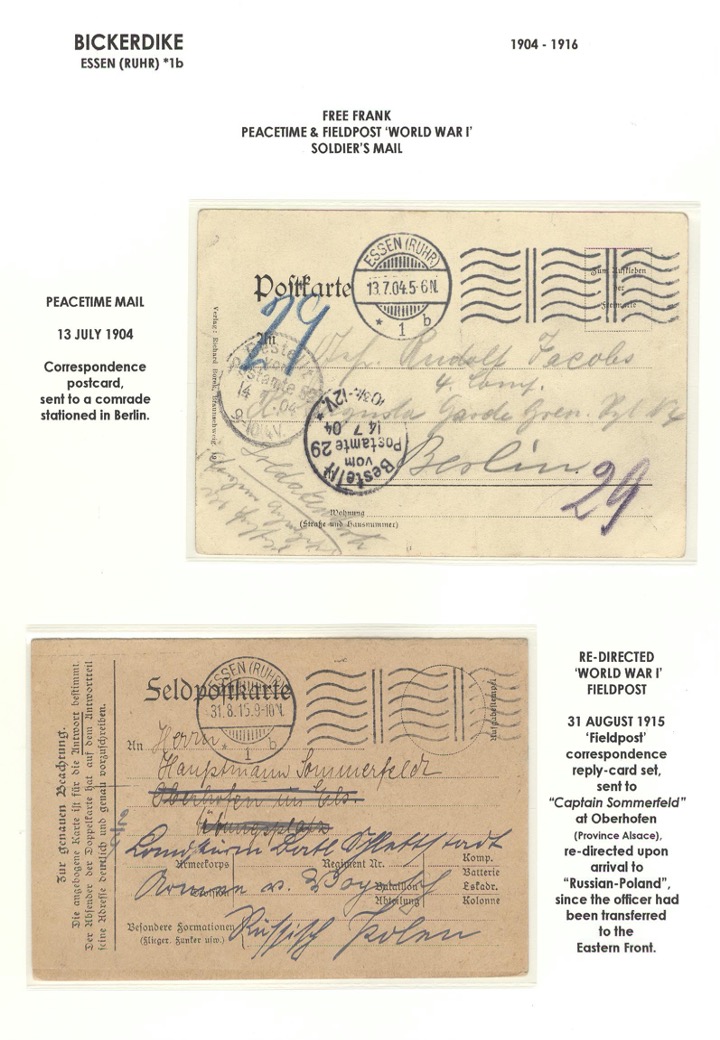 BICKERDIKE
ESSEN (RUHR) *1b
1904 - 1916
FREE FRANK
PEACETIME & FIELDPOST 'WORLD WAR I'
SOLDIER'S MAIL
PEACETIME MAIL
13 JULY 1904
Correspondence
postcard,
sent to a comrade
stationed in Berlin.
Postkarte
ESSEN (RUHR)
13.7.04.5-6N.
* 1 b
Zum Aufkleben
der
Freimarke
29
An
Rudolf Jacobs
4. Comp.
Augusta Garde Gren. Rgt
Berlin
29
Bestellt
vom
Postamte
14 7 04
9-10
Bestellt
vom
Postamte 29
14 7 04
Verlag: Richard
Wohnung
(Straße und Hausnummer)
RE-DIRECTED
'WORLD WAR I'
FIELDPOST
31 AUGUST 1915
'Fieldpost'
correspondence
reply-card set,
sent to
"Captain Sommerfeld"
at Oberhofen
(Province Alsace),
re-directed upon
arrival to
"Russian-Poland",
since the officer had
been transferred
to the
Eastern Front.
Zur genauen Beachtung.
Die angebogene Karte ist für die Antwort bestimmt.
Der Absender der Doppelkarte hat auf dem Antwortteil
seine Adresse deutlich und genau vorzuschreiben.
Feldpostkarte
ESSEN (RUHR)
31.8.15.9-10N.
* 1 b
An
Herrn
Hauptmann Sommerfeldt
Oberhofen im Els.
Übungsplatz
Landsturm Batl Schlettstadt
Armeekorps
Regiment Nr.
Komp.
Batterie
Armee v. Woyrsch
Bataillon
Abteilung
Eskadr.
Kolonne
Besondere Formationen
(Flieger, Funker usw.)
Russisch Polen